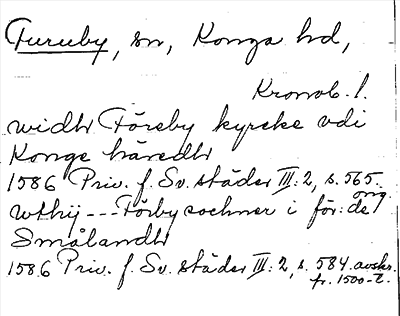 Furuby, sn, Konga hd,
Kronob. l.
widh Töreby kyrcke vdi
Konge häredh
1586 Priv. f. Sv. städer III:2, s. 565.
orig.
vthij --- Förby sochner i för:de
Smålandh
1586 Priv. f. Sv. städer III:2, s. 584. avskr.
fr. 1500-t.